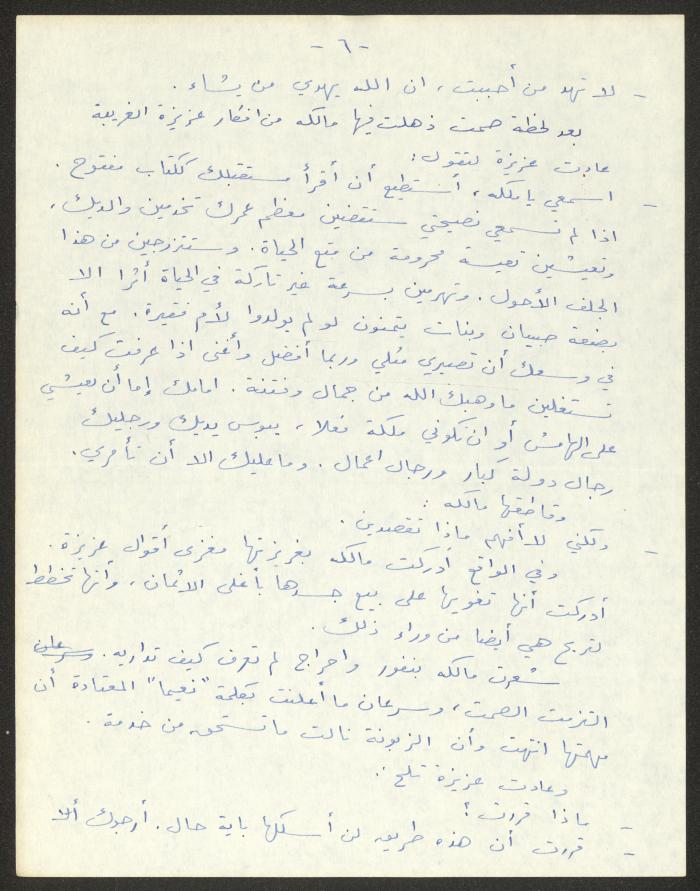 - ٦ -
- لا تهد من أحببت، ان الله يهدي من يشاء.
بعد لحظة صمت ذهلت فيها مالكه من افكار عزيزة الغريبة
عادت عزيزة لتقول:
- اسمعي يا ملكه، أستطيع أن أقرأ مستقبلك ككتاب مفتوح.
اذا لم تسمعي نصيحتي ستقضين معظم عمرك تخدمين والديك،
وتعيشين تعيسة محرومة من متع الحياة. وستتزوجين من هذا
الجلف الأحول. وتهرمين بسرعة غير تاركة في الحياة أثرا الا
بضعة صبيان وبنات يتمنون لو لم يولدوا لأم فقيرة. مع أنه
في وسعك أن تصيري مثلي وربما أفضل وأغنى اذا عرفت كيف
تستغلين ما وهبك الله من جمال وفتنة. امامك إما أن تعيشي
على الهامش أو ان تكوني ملكة فعلا، يبوس يديك ورجليك
رجال دولة كبار ورجال اعمال. وما عليك الا أن تأمري.
وقاطعتها مالكه:
- ولكني لا أفهم ماذا تقصدين.
وفي الواقع أدركت مالكه بغريزتها مغزى أقوال عزيزة.
أدركت أنها تغويها على بيع جسدها بأغلى الاثمان، وأنها تخطط
لتربح هي أيضا من وراء ذلك.
شعرت مالكه بنفور واحراج لم تعرف كيف تداريه. وسرعان
التزمت الصمت، وسرعان ما أعلنت بكلمة "نعيما" المعتادة أن
مهمتها انتهت وأن الزبونة نالت ما تستحق من خدمة.
وعادت عزيزة تلح:
- ماذا قررت؟
- قررت أن هذه طريق لن أسلكها باية حال. أرجوك ألا